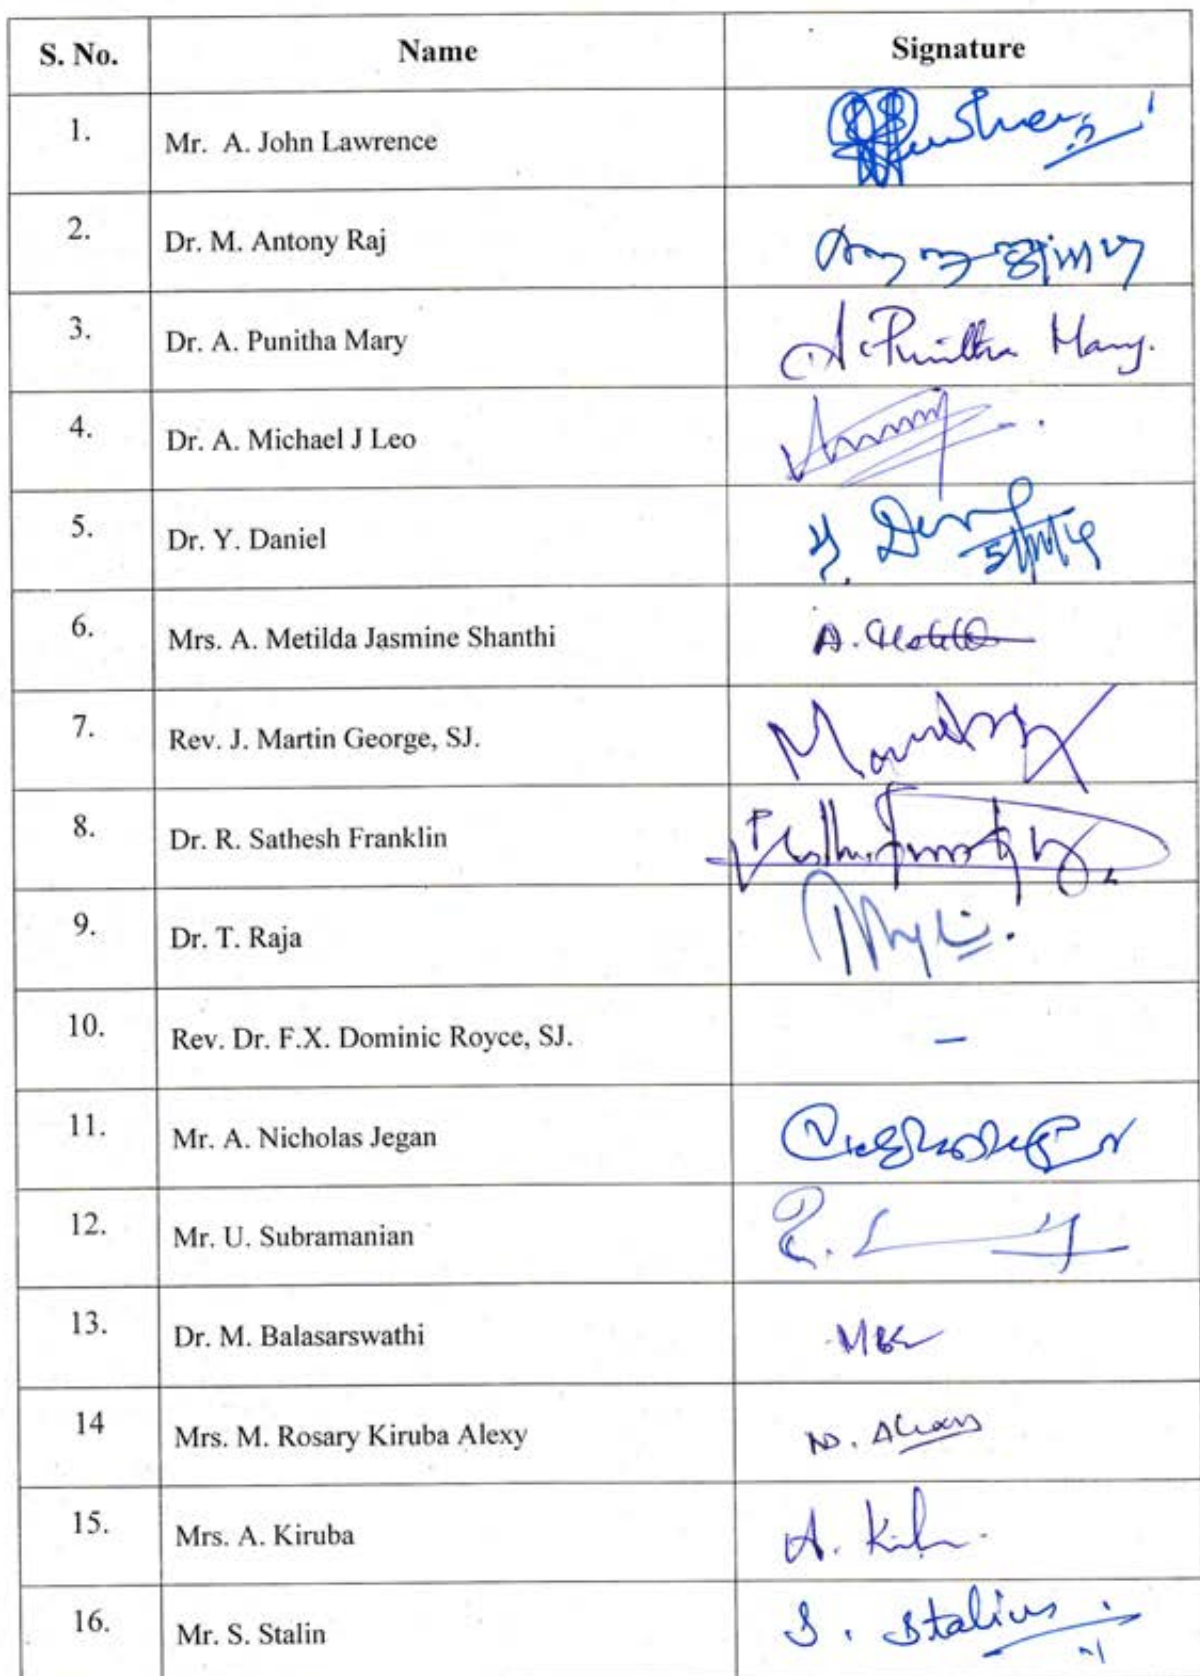 S. No. Name Signature
1. Mr. A. John Lawrence
2. Dr. M. Antony Raj
3. Dr. A. Punitha Mary A. Punitha Mary.
4. Dr. A. Michael J Leo
5. Dr. Y. Daniel Y.
6. Mrs. A. Metilda Jasmine Shanthi A.
7. Rev. J. Martin George, SJ.
8. Dr. R. Sathesh Franklin
9. Dr. T. Raja
10. Rev. Dr. F.X. Dominic Royce, SJ. –
11. Mr. A. Nicholas Jegan
12. Mr. U. Subramanian
13. Dr. M. Balasarswathi
14 Mrs. M. Rosary Kiruba Alexy
15. Mrs. A. Kiruba A.
16. Mr. S. Stalin S. Stalin